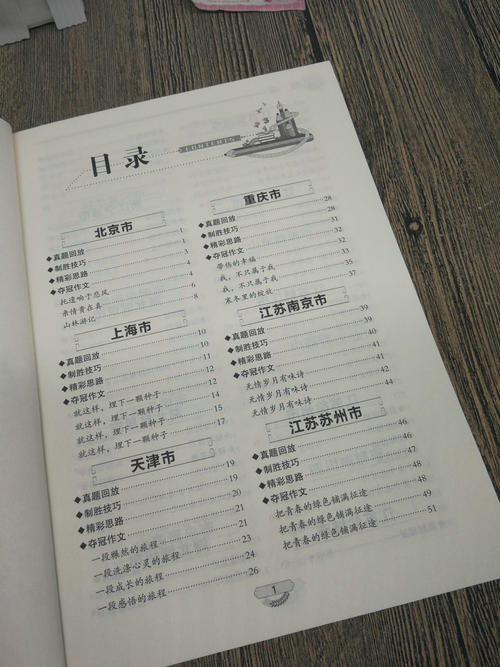 目录
CONTENTS
北京市
◆真题回放 1
◆制胜技巧 1
◆精彩思路 3
◆夺冠作文 4
托遗响于悲风 4
亲情贵在真 6
山林游记 8
上海市
◆真题回放 10
◆制胜技巧 10
◆精彩思路 11
◆夺冠作文 12
就这样，埋下一颗种子 12
就这样，埋下一颗种子 14
就这样，埋下一颗种子 15
就这样，埋下一颗种子 17
天津市
◆真题回放 19
◆制胜技巧 19
◆精彩思路 20
◆夺冠作文 21
一段雅然的旅程 21
一段洗涤心灵的旅程 23
一段成长的旅程 24
一段感悟的旅程 26
重庆市
◆真题回放 28
◆制胜技巧 28
◆精彩思路 31
◆夺冠作文 32
带伤的幸福 32
我，不只属于我 33
我，不只属于我 35
寒冬里的绽放 37
江苏南京市
◆真题回放 39
◆制胜技巧 39
◆精彩思路 40
◆夺冠作文 41
无情岁月有味诗 42
无情岁月有味诗 44
江苏苏州市
◆真题回放 46
◆制胜技巧 46
◆精彩思路 47
◆夺冠作文 48
把青春的绿色铺满征途 48
把青春的绿色铺满征途 49
把青春的绿色铺满征途 51
1